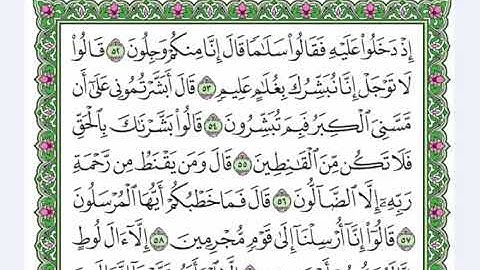 إِذْ دَخَلُوا۟ عَلَيْهِ فَقَالُوا۟ سَلَٰمًا قَالَ إِنَّا مِنكُمْ وَجِلُونَ ٥٢ قَالُوا۟
لَا تَوْجَلْ إِنَّا نُبَشِّرُكَ بِغُلَٰمٍ عَلِيمٍ ٥٣ قَالَ أَبَشَّرْتُمُونِى عَلَىٰٓ أَن
مَّسَّنِىَ ٱلْكِبَرُ فَبِمَ تُبَشِّرُونَ ٥٤ قَالُوا۟ بَشَّرْنَٰكَ بِٱلْحَقِّ
فَلَا تَكُن مِّنَ ٱلْقَٰنِطِينَ ٥٥ قَالَ وَمَن يَقْنَطُ مِن رَّحْمَةِ
رَبِّهِۦٓ إِلَّا ٱلضَّآلُّونَ ٥٦ قَالَ فَمَا خَطْبُكُمْ أَيُّهَا ٱلْمُرْسَلُونَ
٥٧ قَالُوٓا۟ إِنَّآ أُرْسِلْنَآ إِلَىٰ قَوْمٍ مُّجْرِمِينَ ٥٨ إِلَّآ ءَالَ لُوطٍ